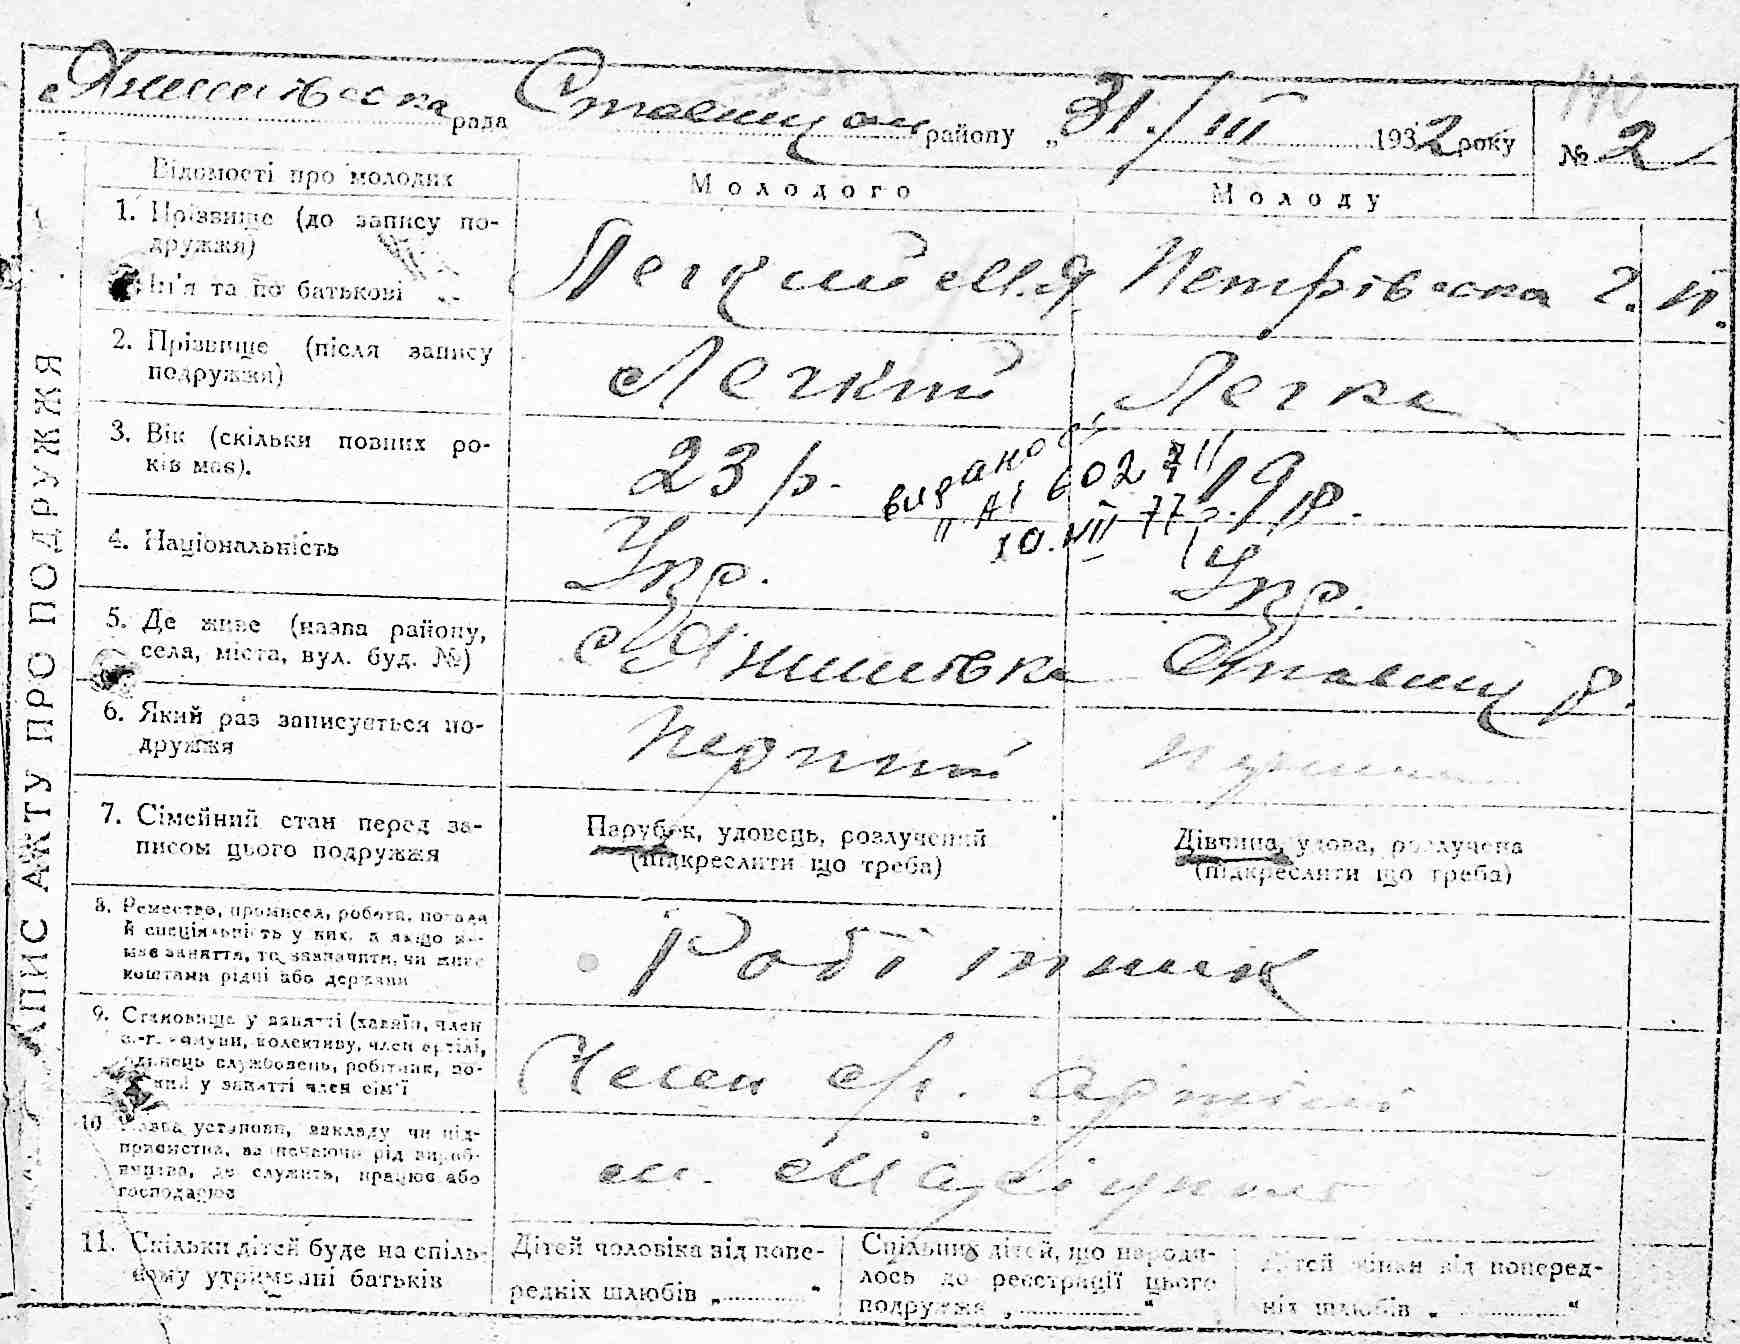 с Янишівська рада Ставищан району „31./III 1932 року № 2
Відомості про молодих
Молодого
Молоду
1. Прізвище (до запису подружжя)
Ім'я та по батькові
Легкий М.Я.
Петрівська Г. П.
2. Прізвище (після запису подружжя)
Легкий
Легка
3. Вік (скільки повних років має).
23 р.
19 р.
видано
10.VIII 77 р.
4. Національність
Укр.
Укр.
5. Де живе (назва району, села, міста, вул. буд. №)
с Янишівка Ставищ р.
6. Який раз записується подружжя
Перший
7. Сімейний стан перед записом цього подружжя
Парубок, удовець, розлучений
(підкреслити що треба)
Дівчина, удова, розлучена
(підкреслити що треба)
8. Ремество, промисел, робота, посада
й спеціальність у них, а якщо не
має заняття, то зазначити, чи живе
коштами рідні або держави
Робітник
9. Становище у занятті (хазяїн, член
с.-г. комуни, колективу, член артілі,
службовець, робітник,
у занятті член сім'ї
Член с/г. артілі
10. Назва установи, закладу чи підприємства, зазначаючи рід виробництва, де служить, працює або господарює
11. Скільки дітей буде на спільному утриманні батьків
Дітей чоловіка від попередніх шлюбів „ “
Спільних дітей, що народилось до реєстрації цього подружжя „ “
Дітей жінки від попередніх шлюбів „ “
ЗАПИС АКТУ ПРО ПОДРУЖЖЯ